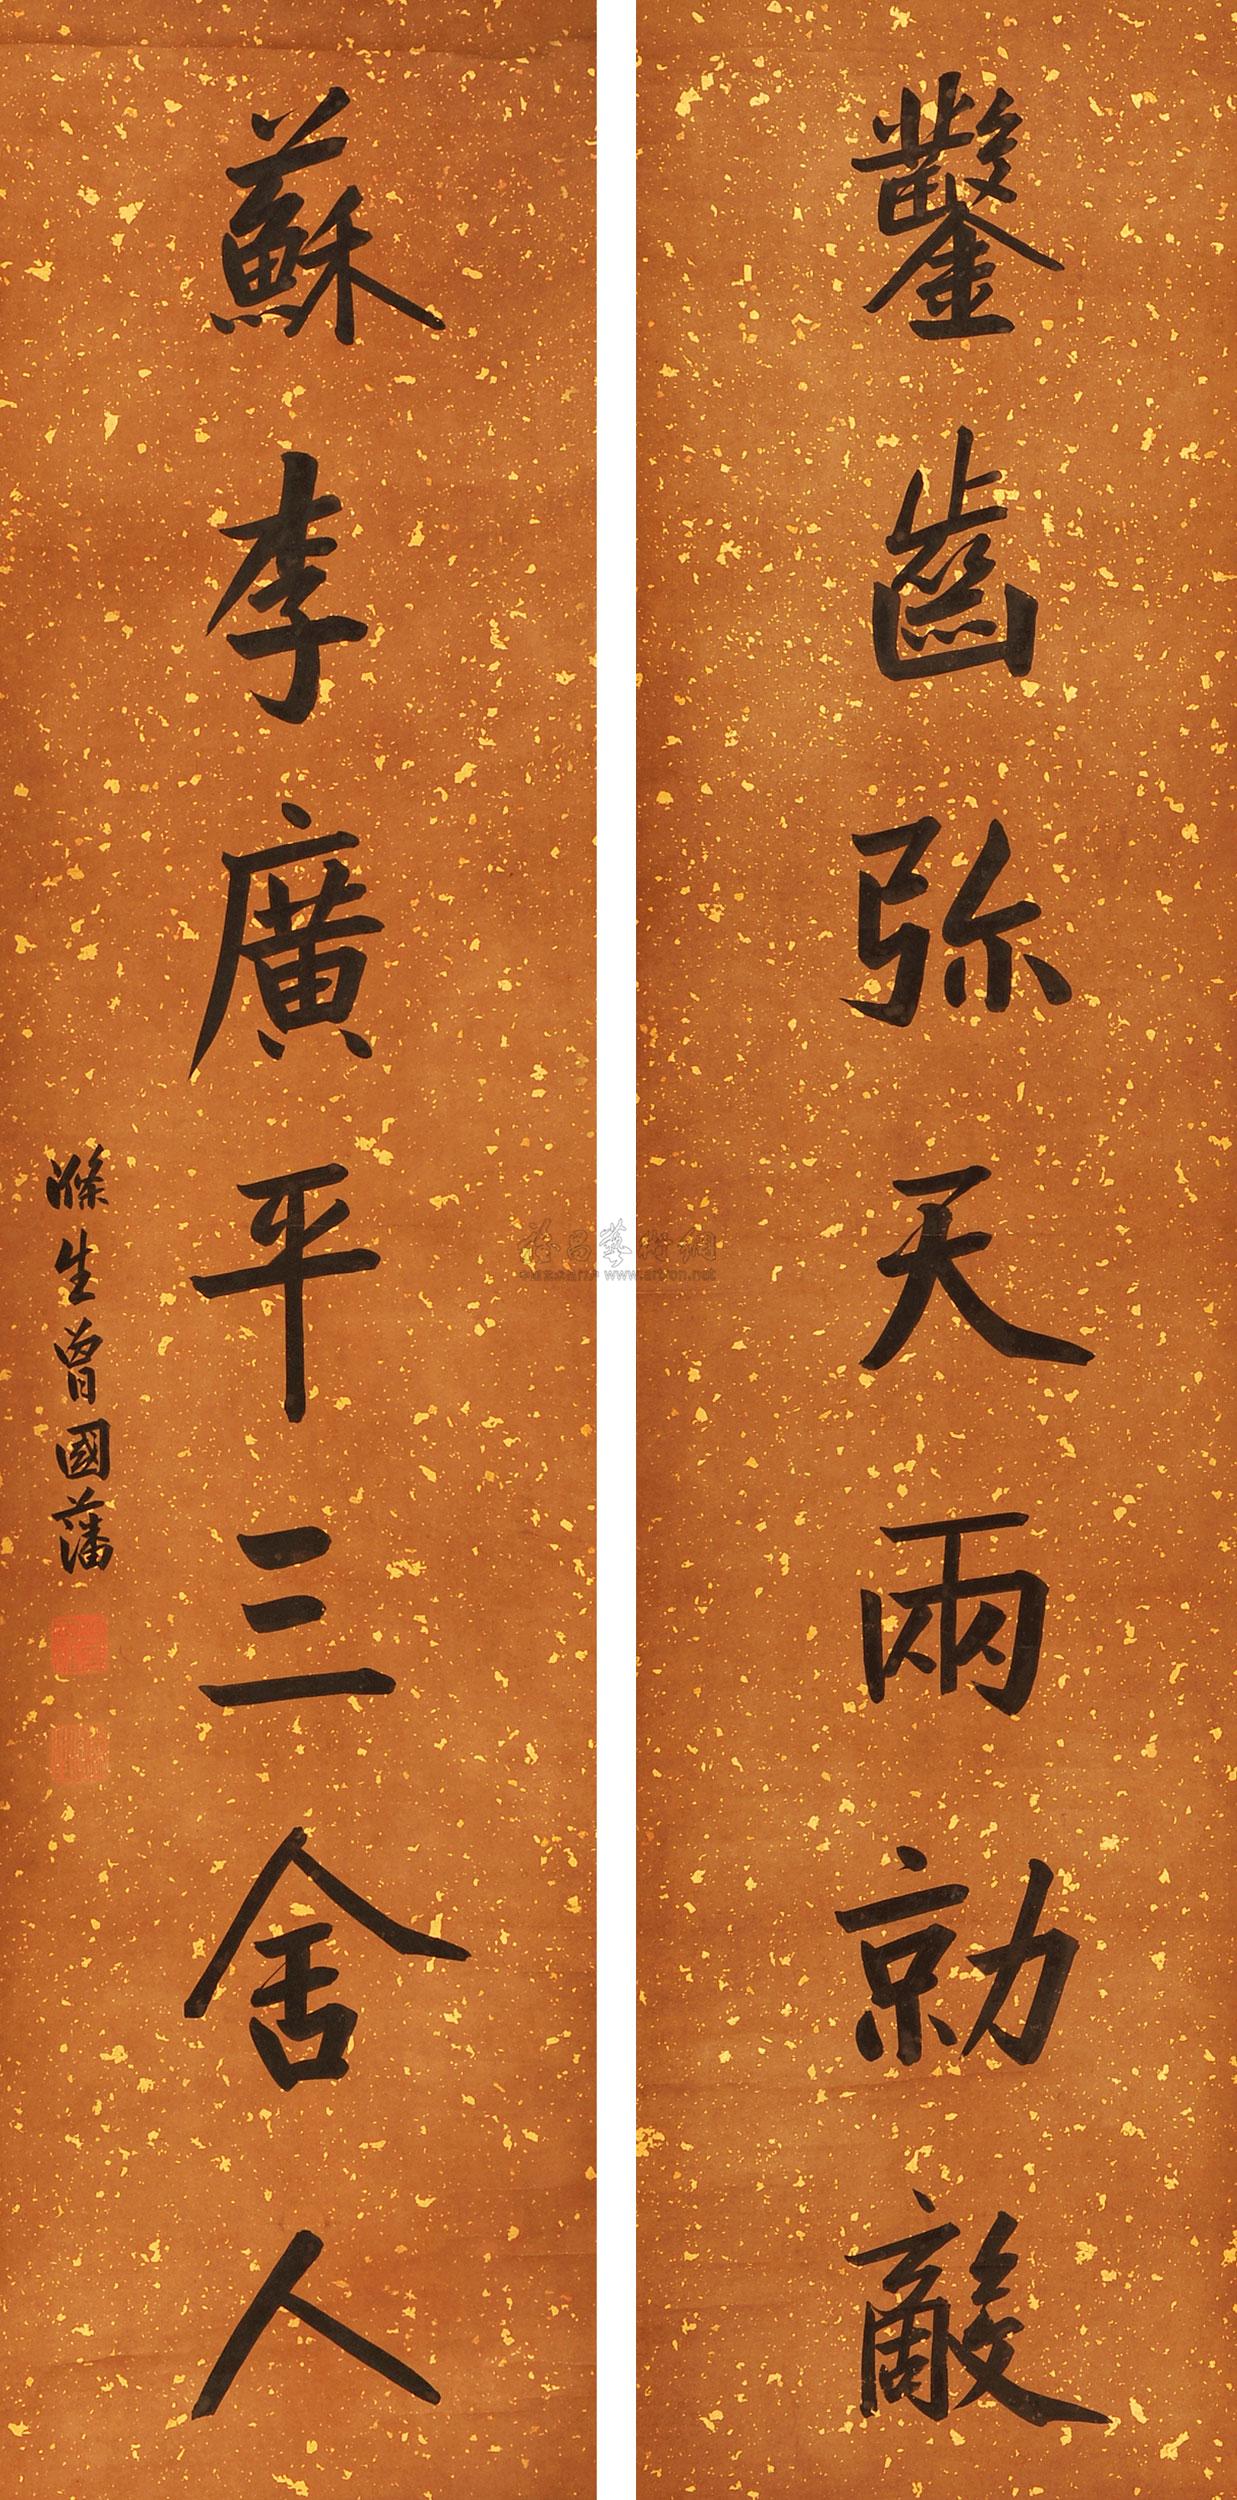 鑿齒弥天兩勍敵
蘇李廣平三舍人
滌生曾國藩
www.artron.net